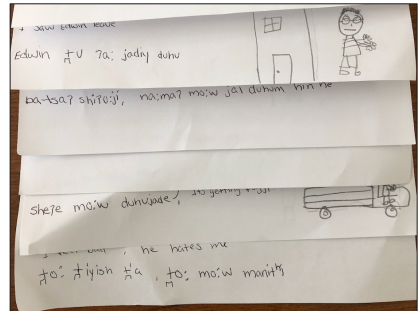 I saw Edwin leave
Edwin t̪U ʔa: jadiy duhu
ba-tsaʔ shiʔo:ji, na:maʔ mo:w jal duhum hin ne
sheʔe mo:w duhujade, its getting
he hates me
t̪o: t̪iyish t̪'a, t̪o: mo:w